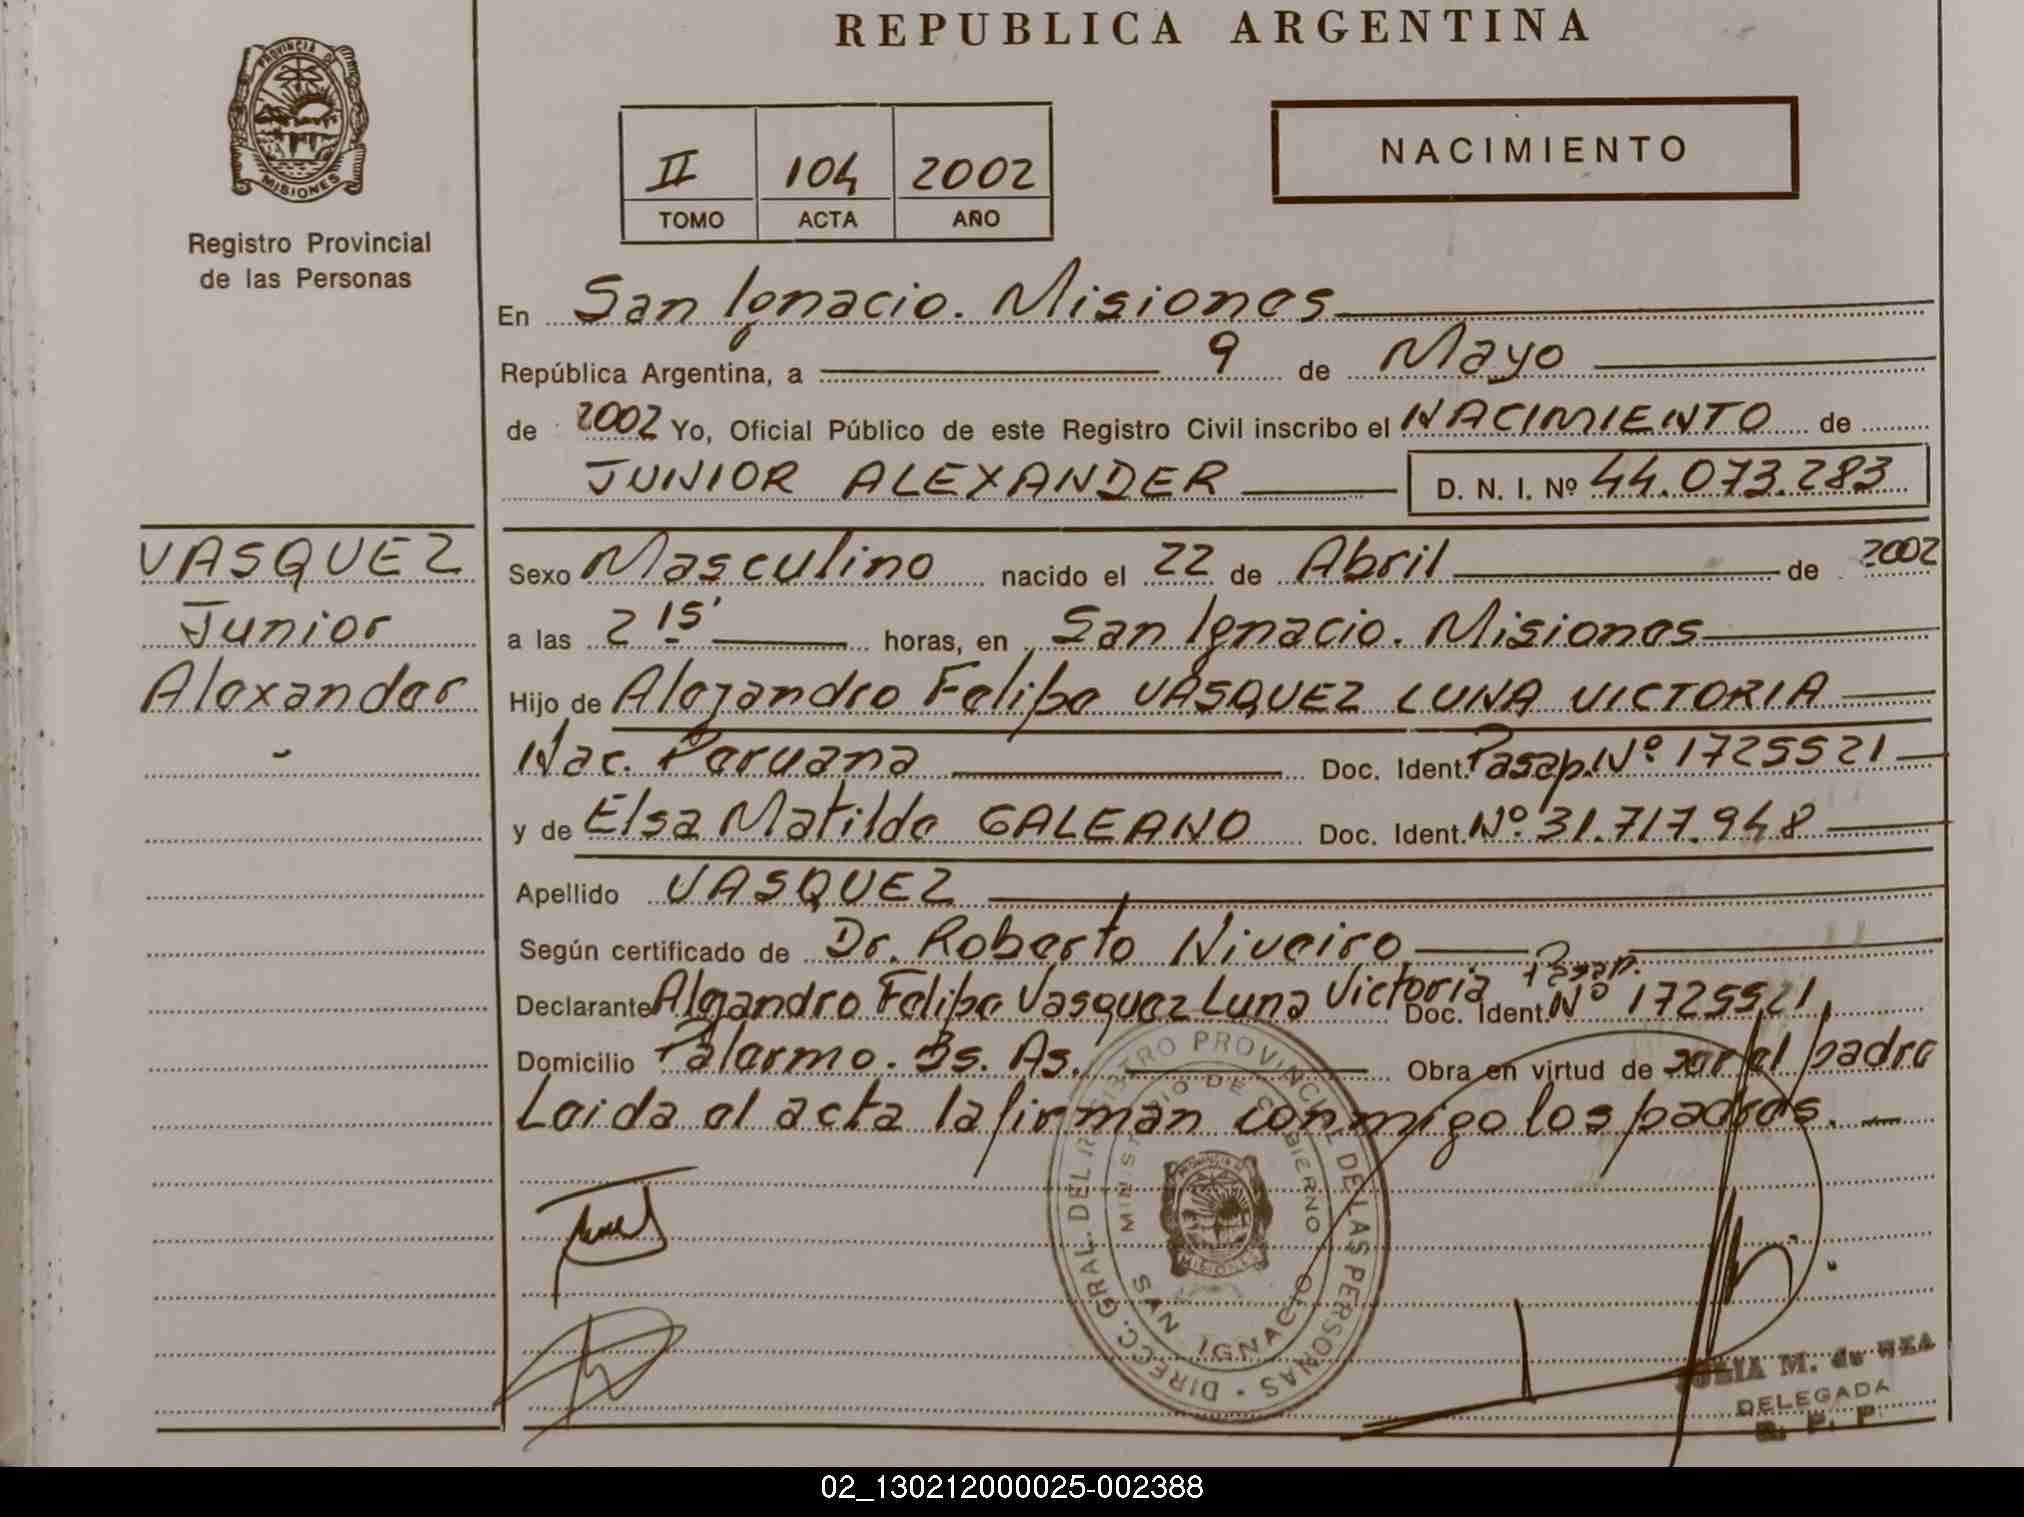 REPUBLICA ARGENTINA
PROVINCIA DE
MISIONES
Registro Provincial
de las Personas
II 104 2002
TOMO ACTA AÑO
NACIMIENTO
En San Ignacio. Misiones
República Argentina, a 9 de Mayo
de 2002 Yo, Oficial Público de este Registro Civil inscribo el NACIMIENTO de
JUNIOR ALEXANDER D. N. I. Nº 44.073.283
VASQUEZ
Junior
Alexander
Sexo Masculino nacido el 22 de Abril de 2002
a las 2 15' horas, en San Ignacio. Misiones
Hijo de Alejandro Felipe VASQUEZ LUNA VICTORIA
Nac. Peruana Doc. Ident. Pasap. Nº 1725521
y de Elsa Matilde GALEANO Doc. Ident. Nº 31.717.948
Apellido VASQUEZ
Según certificado de Dr. Roberto Niveiro
Declarante Alejandro Felipe Vasquez Luna Victoria Doc. Ident. Pasap. Nº 1725521
Domicilio Palermo. Bs. As. Obra en virtud de ser el padre
Leida el acta la firman conmigo los padres.
DIRECC. GRAL. DEL REGISTRO PROVINCIAL DE LAS PERSONAS
MINISTERIO DE GOBIERNO
SAN IGNACIO
MISIONES
M. de
DELEGADA
R. P. P.
02_130212000025-002388